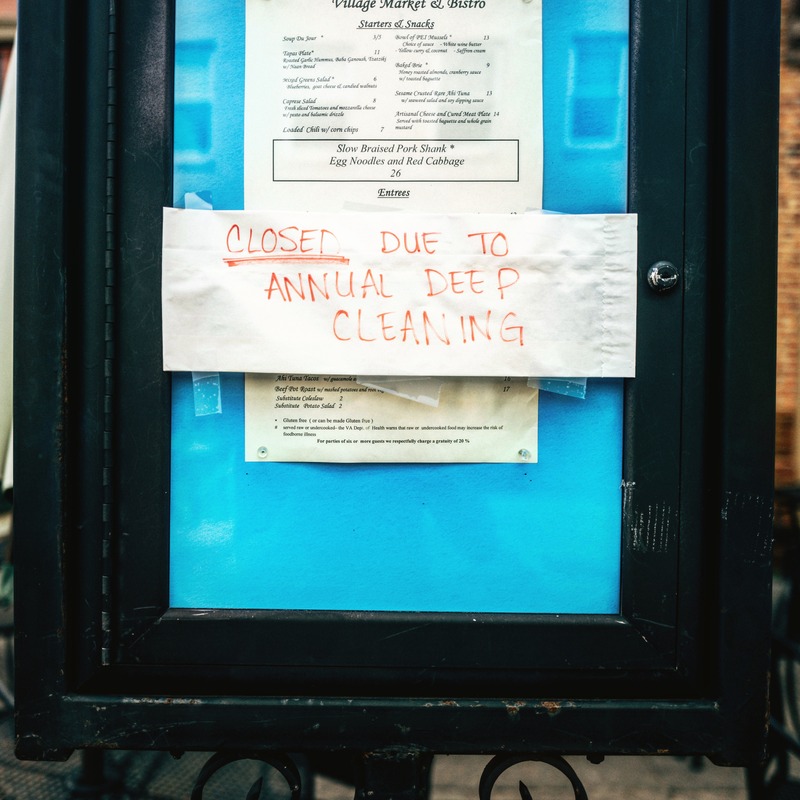 Village Market & Bistro
Starters & Snacks
Soup Du Jour * 5/5
Tapas Plate* 11
Roasted Garlic Hummus, Baba Ganoush, Tzatziki
w/ Naan Bread
Mixed Greens Salad * 6
Blueberries, goat cheese & candied walnuts
Caprese Salad 8
Fresh sliced Tomatoes and mozzarella cheese
w/ pesto and balsamic drizzle
Loaded Chili w/ corn chips 7
Bowl of PEI Mussels * 13
Choice of sauce - White wine butter
- Yellow curry & coconut - Saffron cream
Baked Brie * 9
Honey roasted almonds, cranberry sauce
w/ toasted baguette
Sesame Crusted Rare Ahi Tuna 13
w/ seaweed salad and soy dipping sauce
Artisanal Cheese and Cured Meat Plate 14
Served with toasted baguette and whole grain
mustard
Slow Braised Pork Shank *
Egg Noodles and Red Cabbage
26
Entrees
CLOSED DUE TO
ANNUAL DEEP
CLEANING
Ahi Tuna Tacos w/ guacamole 16
Beef Pot Roast w/ mashed potatoes and root 17
Substitute Coleslaw 2
Substitute Potato Salad 2
* Gluten free ( or can be made Gluten free )
# served raw or undercooked--the VA Dept. of Health warns that raw or undercooked food may increase the risk of
foodborne illness
For parties of six or more guests we respectfully charge a gratuity of 20 %